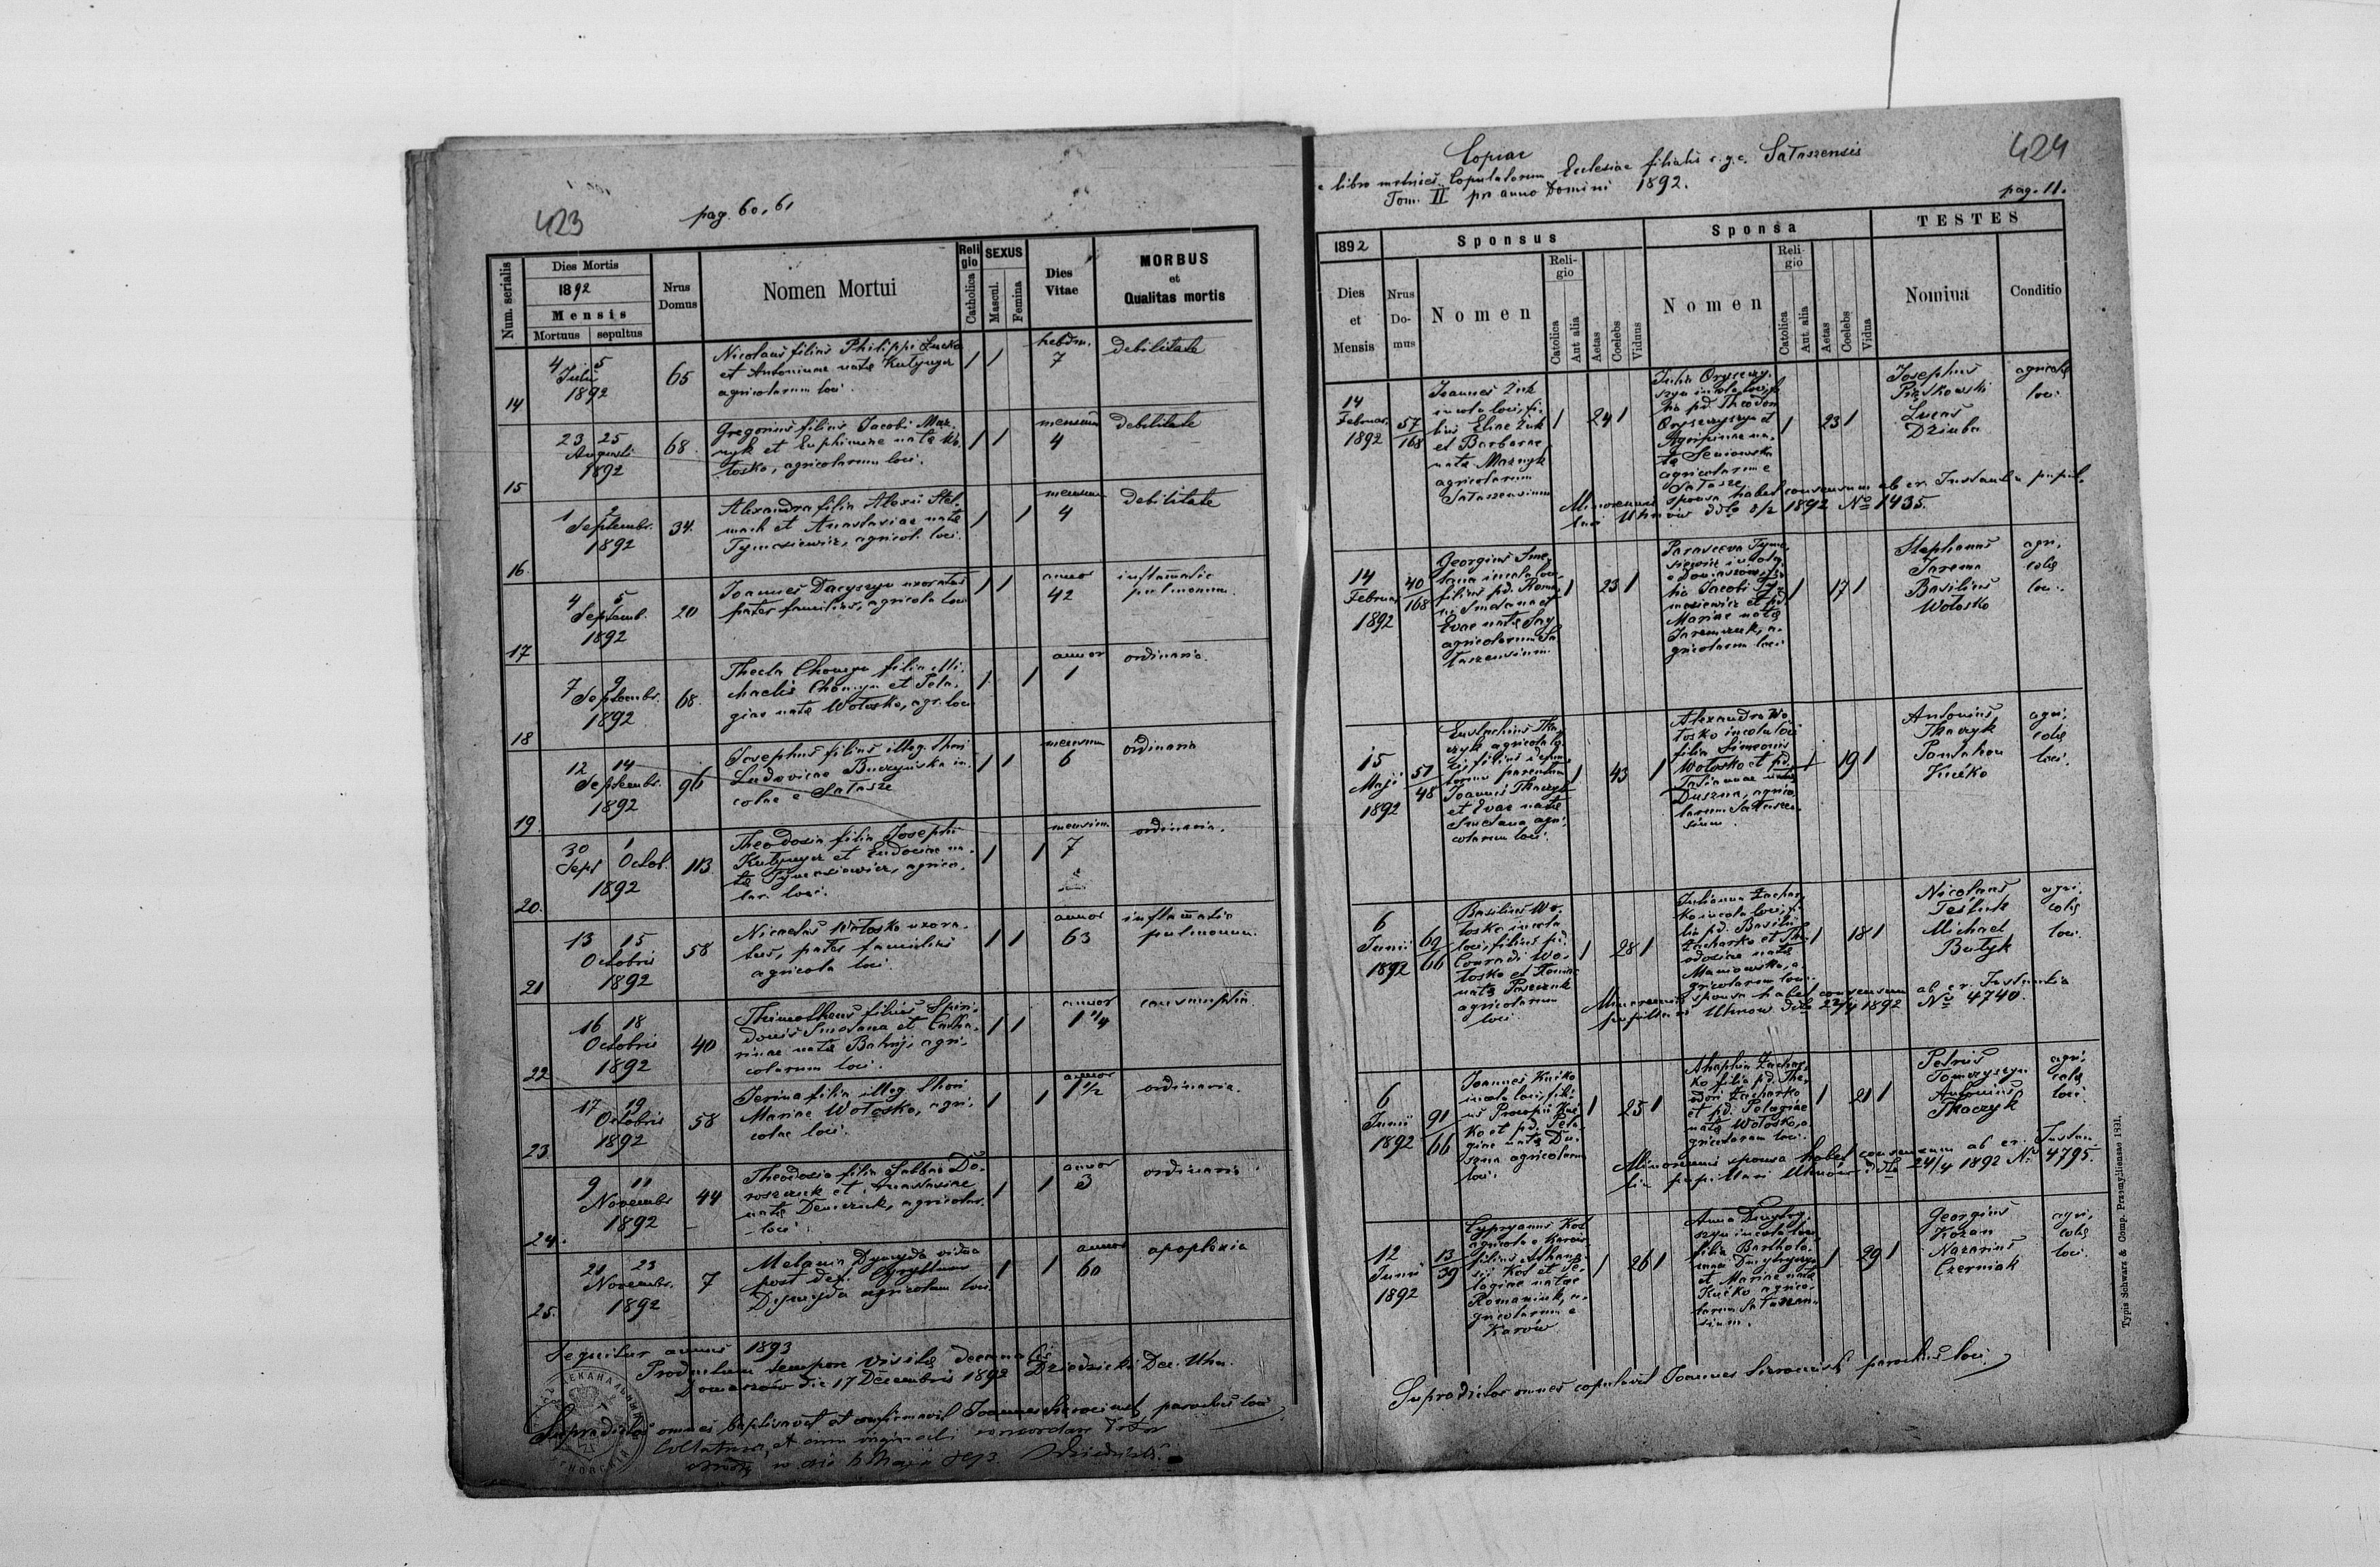 423
pag. 60, 61
Num. serialis
Dies Mortis
1892
Mensis
Mortuus sepultus
Nrus
Domus
Nomen Mortui
Reli
gio
Catholica
SEXUS
Mascul.
Femina
Dies
Vitae
MORBUS
et
Qualitas mortis
14
4 5
Julii
1892
65
Nicolaus filius Philippi Lucko
et Antoninae natę
agricolarum loci.
1 1
hebdom.
7
debilitate
15
23 25
Augusti
1892
68.
Gregorius filius Jacobi Maz-
nyk et Euphimiae natę Wo-
łosko, agricolarum loci.
1 1
mensium
4
debilitate
16.
1 2
Septembr.
1892
34.
Alexandra filia Alexii Stel-
mach et Anastasiae natę
Tymosiewicz, agricol. loci.
1 1
mensium
4
debilitate
17
4 5
Septemb.
1892
20
Joannes Dacyszyn uxoratus
pater familias, agricola loci
1 1
annor
42
inflam̄atio
pulmonum.
18
7 9
Septembr.
1892
68.
Thecla Chomyn filia Mi-
chaelis Chomyn et Pela-
giae natę Wołosko, agr. loci
1 1
annor
1
ordinaria.
19.
12 14
Septembr.
1892
96
Josephus filius illeg. thori
Ludovicae Buczyńska in-
colae e Sałasze
1 1
mensium
6
ordinaria
20.
30 1
Sept Octob.
1892
113.
Theodosia filia Josephi
et Eudociae na-
tę Tymosiewicz, agrico-
lar. loci.
1 1
mensium
7
ordinaria.
21
13 15
Octobris
1892
58
Nicetas Wołosko uxora-
tus, pater familias
agricola loci.
1 1
annor
63
inflam̄atio
pulmonum.
22
16 18
Octobris
1892
40
Thimotheus filius Spiri-
donis Smolana et Catha-
rinae natę agri-
colarum loci.
1 1
annor
1 1/4
consumptio.
23
17 19
Octobris
1892
58
filia illeg. thori
Mariae Wołosko, agri-
colae loci.
1 1
annor
1 1/2
ordinaria.
24.
9 11
Novembr
1892
44
Theodosia filia Sabbae Do-
roszczuk et Anastasiae
natę Demczuk, agricolar.
loci.
1 1
annor
3
ordinaria
25.
21 23
Novembr.
1892
7
Melania Dymyda vidua
post def.
Dymyda agricolam loci.
1 1
annor
60
apoplexia
Sequitur annus 1893
Productum tempore visitę decanalis
Domaszów die 17 Decembris 1892 Dziedzicki Dec. Uhn.
Supradictos omnes baptisavit et confirmavit Joannes parochus loci
cum originali concordare
424
Copiae
e libro metrices Copulatorum Ecclesiae filialis r. g. c. Sałaszensis
Tom. II pro anno Domini 1892.
pag. 11.
1892
Dies
et
Mensis
Nrus
Do-
mus
Sponsus
Nomen
Reli-
gio
Catolica
Aut alia
Aetas
Coelebs
Viduus
Sponsa
Nomen
Reli-
gio
Catolica
Aut. alia
Aetas
Coelebs
Vidua
TESTES
Nomina
Conditio
14
Februar.
1892
57
168
Joannes Żuk
incola loci, fi-
lius Eliae Żuk
et Barbarae
natę Maznyk
agricolarum
Sałaszensium
1 24 1
Julia Oryszczy-
szyn incola loci, fi-
lia pd. Theodori
Oryszczyszyn et
Agripinae na-
tę Seniowska
agricolarum e
Sałasze
1 23 1
Josephus
Pińkowski
Lucas
Dziuba
agricolę
loci
Minorennis sponsa habet consensum ab er. Instantia pupil-
lari Uhnów ddto 8/2 1892 No 1435.
14
Februar
1892
40
168
Georgius Smo-
lana incola loci,
filius pd. Roma-
ni Smolana et
Evae natę Saj
agricolarum Sa-
łaszensium.
1 23 1
Parasceva Tymo-
siewicz incola
e Domaszów fi-
lia Jacobi Ty-
mosiewicz et pd.
Mariae natę
Jaremczuk, a-
gricolarum loci
1 17 1
Stephanus
Jarema
Basilius
Wołosko
agri-
colę
loci.
15
Maji
1892
51
48
Eustachius Tka-
czyk agricola lo-
ci, filius defunc-
torum parentum
Joannis Tkaczyk
et Evae natę
Smolana agri-
colarum loci.
1 43 1
Alexandra Wo-
łosko incola loci
filia Simeonis
Wołosko et pd.
Tatiannae natę
Duszna, agrico-
larum Sałaszen-
sium.
1 19 1
Antonius
Tkaczyk
Pantaleon
Kućko
agri-
colę
loci.
6
Junii
1892
69
66
Basilius Wo-
łosko incola
loci, filius pd.
Conradi Wo-
łosko et
natę Paszczuk
agricolarum
loci.
1 28 1
Julianna Zachar-
ko incola loci, fi-
lia pd. Basilii
Zacharko et The-
odosiae natę
Maniowska, a-
gricolarum loci.
1 18 1
Nicolaus
Teśluk
Michael
Butyk
agri-
colę
loci.
Minorennis sponsa habet consensum ab er. Instantia
pupillari Uhnów ddto 22/4 1892 No 4740.
6
Junii
1892
91
66
Joannes Kućko
incola loci, fili-
us Procopii Kuć-
ko et pd. Pela-
giae natę Du-
szna agricolarum
loci.
1 25 1
Ahaphia Zachar-
ko filia pd. The-
odori Zacharko
et pd. Pelagiae
natę Wołosko, a-
gricolarum loci.
1 21 1
Petrus
Tomczyszyn
Antonius
Tkaczyk
agri-
colę
loci.
Minorennis sponsa habet consensum ab er. Instan-
tia pupillari Uhnów ddto 24/4 1892 No 4795.
12
Junii
1892
13
39
Cyprianus Kot
agricola e Karów
filius Athana-
sii Kot et Pe-
lagiae natae
Romaniuk, a-
gricolarum e
Karów
1 26 1
Anna Dmytry-
szyn incola loci,
filia Bartholo-
maei Dmytryszyn
et Mariae natę
Kućko agrico-
larum Sałaszen-
sium.
1 29 1
Georgius
Kożan
Nazarius
Czerniak
agri-
colę
loci.
Supradictos omnes copulavit Joannes parochus loci.
Typis Schwarz & Comp. Przemysliensae 1891.